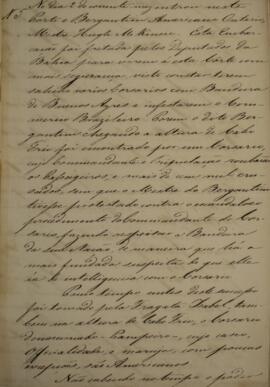 No dia 2 do corrente entrou neste
Porto o Bergantim Americano Ontario,
Mestre Hugh McKinse. Esta Embar-
cação foi fretada pelos Deputados da
Bahia para virem a esta Côrte com
mais segurança, visto constar terem
sahido varios Corsarios com Bandeira
de Buenos Ayres a infestarem o Com-
mercio Brazileiro. Porem o dito Ber-
gantim chegando a altura de Cabo
Frio foi encontrado por um Corsario,
cujo Commandante e Tripulação roubarão
os Passageiros, e mais de cem mil cru-
sados, sem que o Mestre do Bergantim
tivesse protestado contra o escandaloso
procedimento do Commandante do Cor-
sario, fazendo respeitar a Bandeira
da sua Nação, de maneira que ha a
mais fundada suspeita de que elle
em intelligencia com o Corsario.
Pouco tempo antes deste
foi tomado pela Fragata Isabel, tam-
bem na altura de Cabo Frio, o Corsario
denominado - Pampero -, cujo
Officialidade, e maruja, com poucas
são Americanos
Não cabendo no o poder